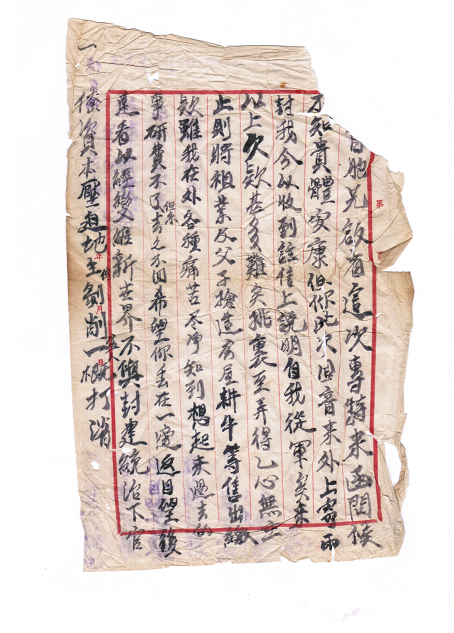 胞兄啟 這次專特來函問候
不知貴體安康但你此次回音來外上
封我今以收到該信上說明自我從軍矣來
以上欠款甚多難矣 裏至弄得 心無主
止則將祖業及父子 造房屋耕牛等售出繳
款難我在外各種痛苦尽净知到想起來過去的
事研費不了 去之不回希望你丢在一 返目望後
還看以經變維新世界不與封建統治下官
僚資本壓迫地主剝削一概打消
第
年 月 日